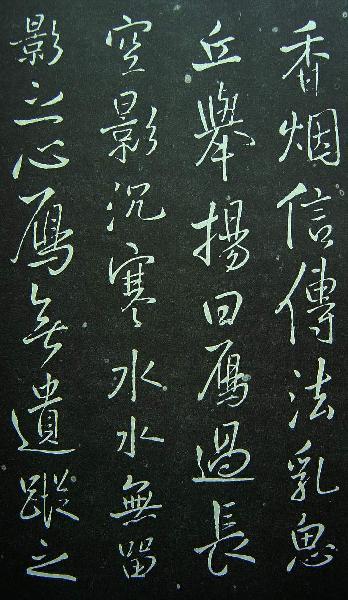 香烟信傳法乳恩
丘舉揚曰雁過長
空影沉寒水水無留
影之心雁無遺蹤之